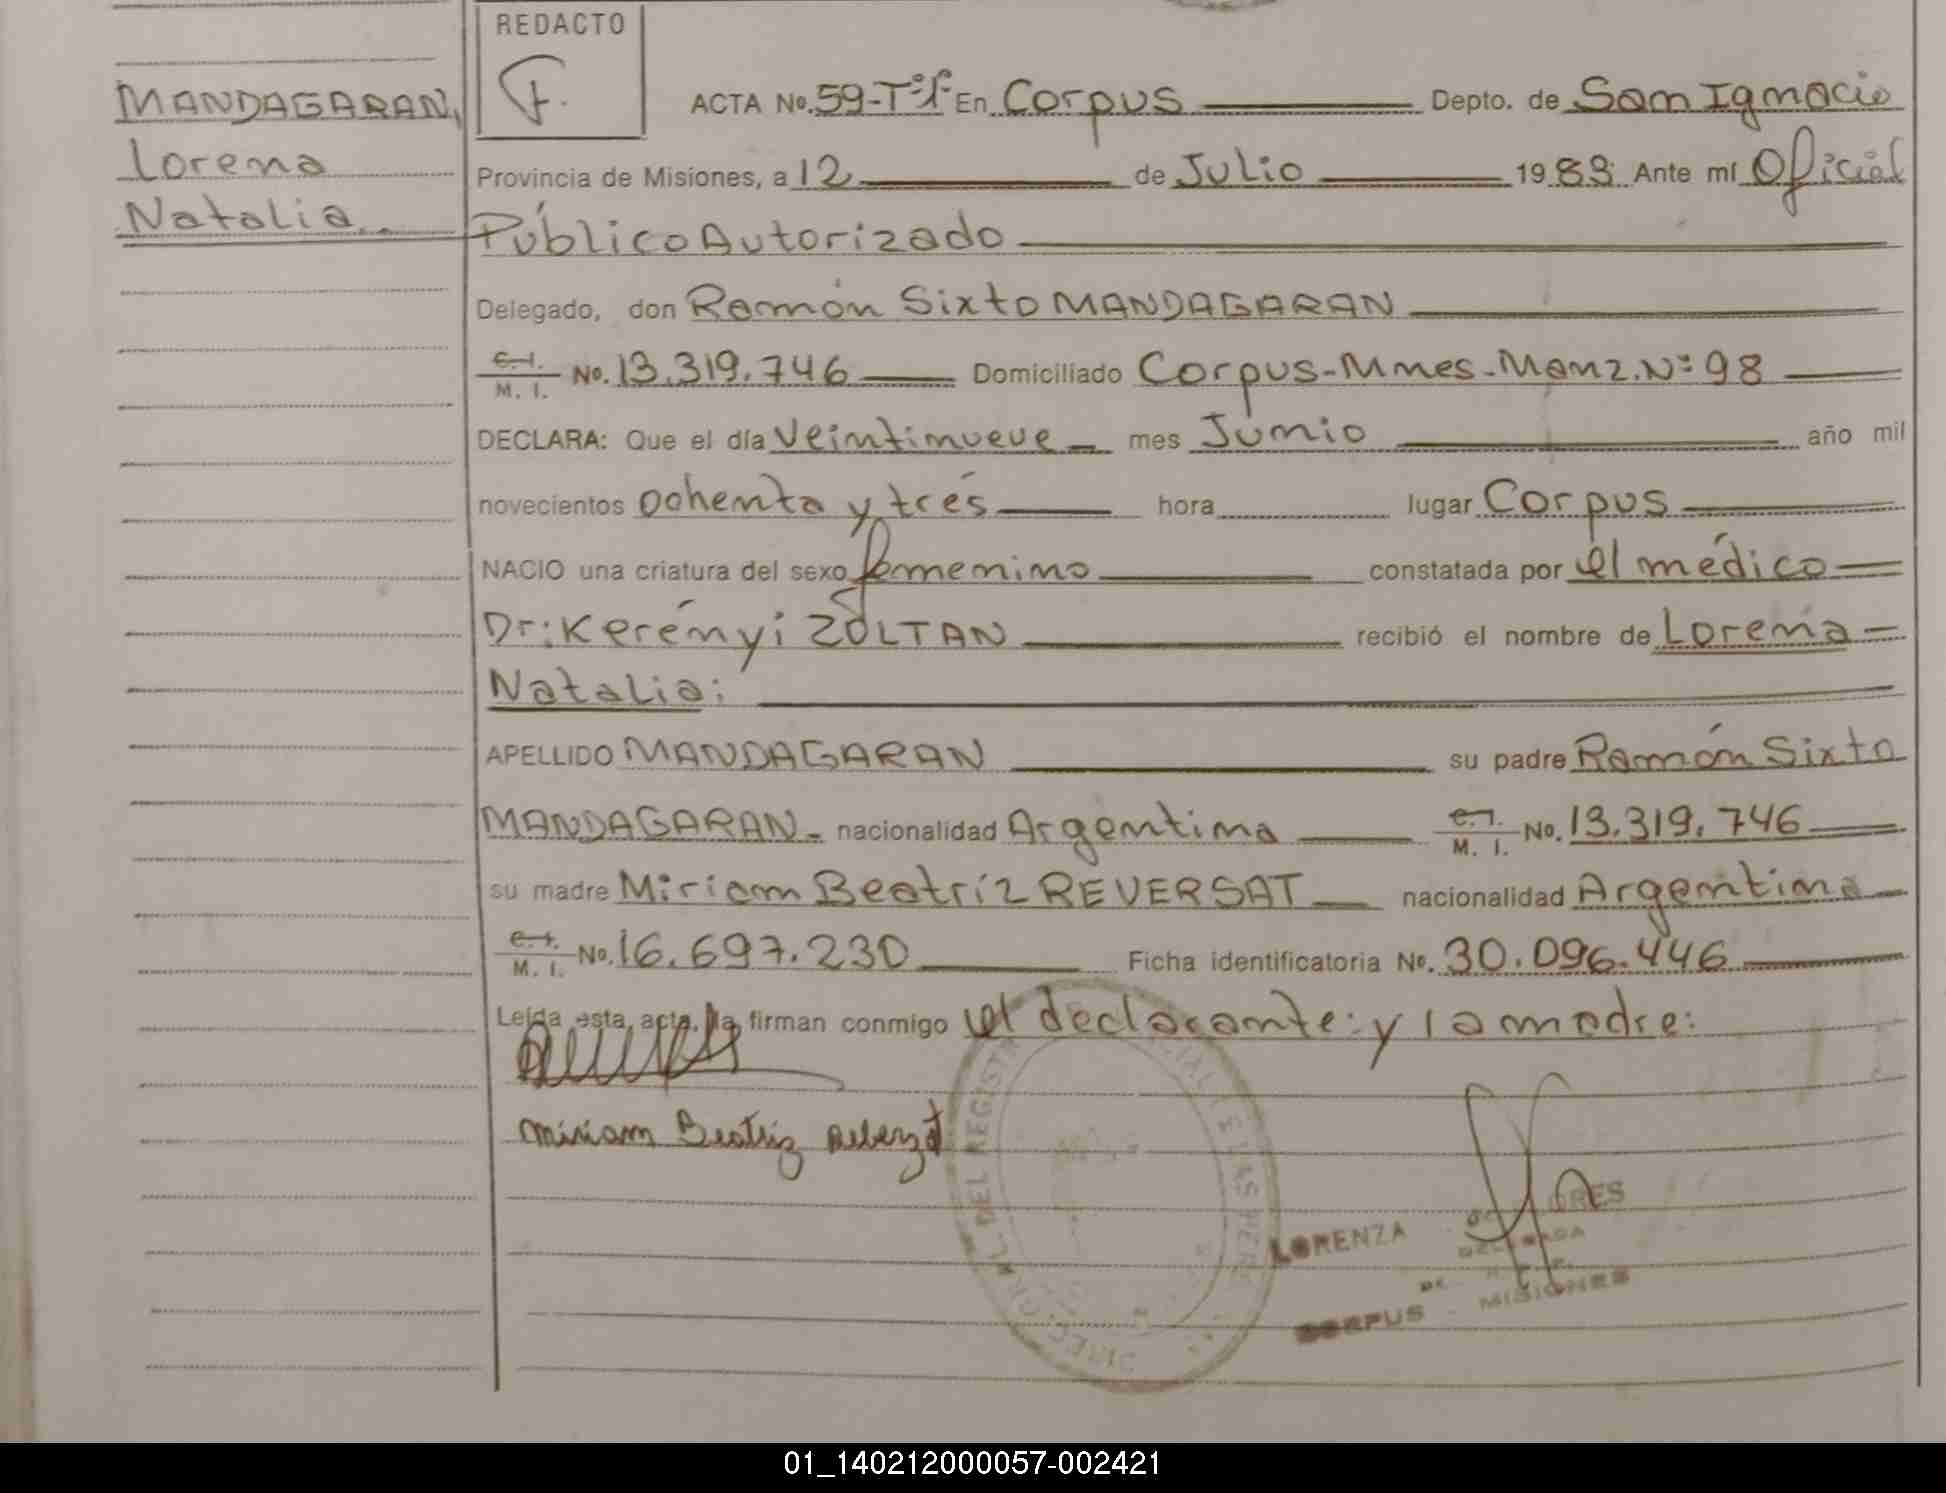 REDACTO
F.
MANDAGARAN,
Lorena
Natalia..
ACTA No. 59-Tº1º En Corpus Depto. de San Ignacio
Provincia de Misiones, a 12 de Julio 1983 Ante mí Oficial
Público Autorizado
Delegado, don Ramón Sixto MANDAGARAN
C.I. M. I. No. 13.319.746 Domiciliado Corpus-Mnes-Manz.Nº 98
DECLARA: Que el día Veintinueve mes Junio año mil
novecientos Ochenta y trés hora lugar Corpus
NACIO una criatura del sexo femenino constatada por el médico
Dr: Kerényi ZOLTAN recibió el nombre de Lorena
Natalia:
APELLIDO MANDAGARAN su padre Ramón Sixto
MANDAGARAN nacionalidad Argentina C.I. M. I. No. 13.319.746
su madre Miriam Beatríz REVERSAT nacionalidad Argentina
C.I. M. I. No. 16.697.230 Ficha identificatoria No. 30.096.446
Leída esta acta, la firman conmigo el declarante: y la madre:
Miriam Beatriz
DEL REGISTR
LORENZA
DELEGADA
CORPUS - MISIONES
01_140212000057-002421